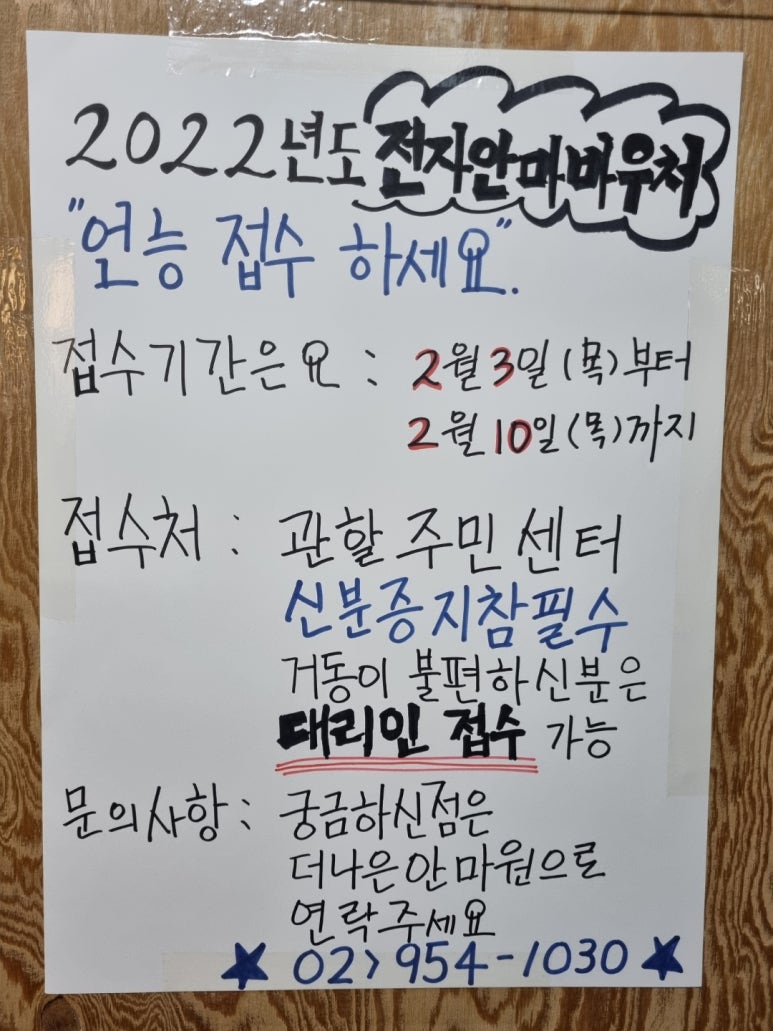 2022년도 전자안마바우처
"언능 접수 하세요".
접수기간은요 : 2월 3일(목)부터
2월 10일(목)까지
접수처 : 관할 주민 센터
신분증지참필수
거동이 불편하신분은
대리인 접수 가능
문의사항 : 궁금하신점은
더나은안마원으로
연락주세요
★ 02> 954-1030 ★